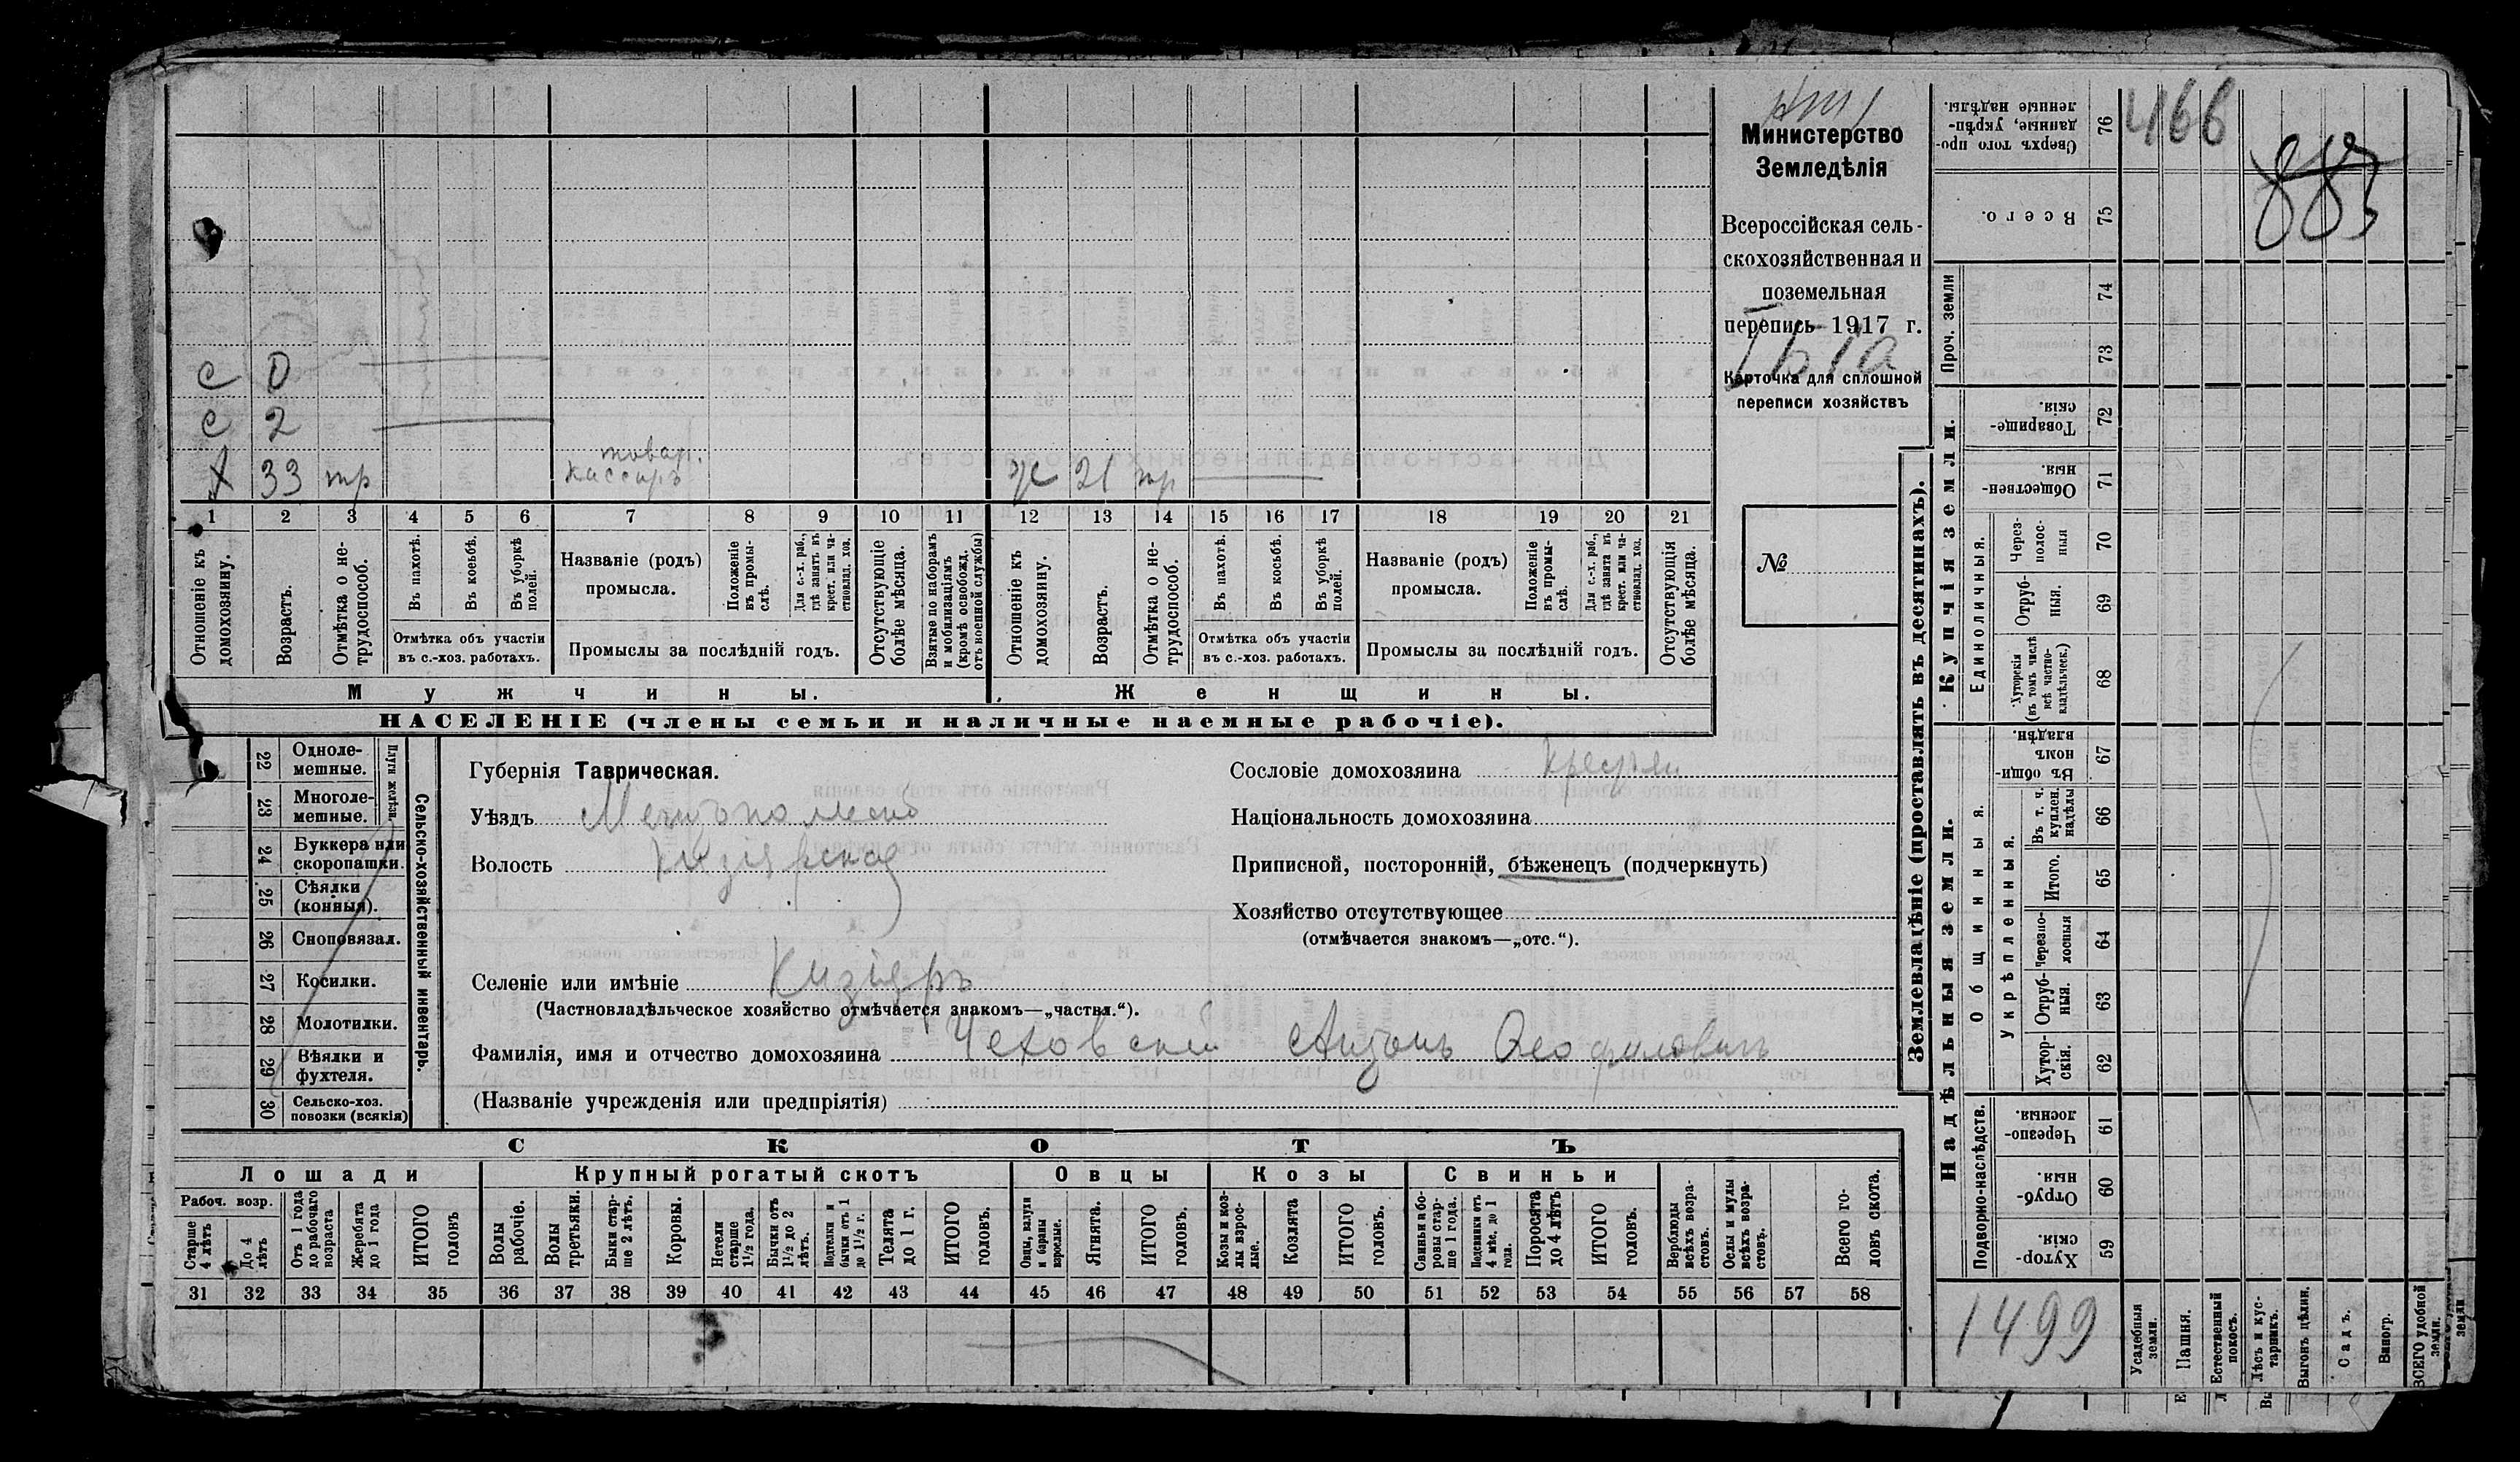 466
883
Министерство
Земледѣлія
Всероссійская сель-
скохозяйственная и
поземельная
перепись 1917 г.
Карточка для сплошной
переписи хозяйствъ
№
с 0
с 2
33 тр товар. кассиръ
ж 21 тр
1 2 3 4 5 6 7 8 9 10 11 12 13 14 15 16 17 18 19 20 21
Отношеніе къ домохозяину.
Возрастъ.
Отмѣтка о не-трудоспособ.
Въ пахотѣ.
Въ косьбѣ.
Въ уборкѣ полей.
Отмѣтка объ участіи въ с.-хоз. работахъ.
Названіе (родъ) промысла.
Положеніе въ промы-слѣ.
Для с.-х. раб., гдѣ занятъ въ крест. или ча-стновлад. хоз.
Промыслы за послѣдній годъ.
Отсутствующіе болѣе мѣсяца.
Взятые по наборамъ и мобилизаціямъ (кромѣ освобожд. отъ военной службы)
Отношеніе къ домохозяину.
Возрастъ.
Отмѣтка о не-трудоспособ.
Въ пахотѣ.
Въ косьбѣ.
Въ уборкѣ полей.
Отмѣтка объ участіи въ с.-хоз. работахъ.
Названіе (родъ) промысла.
Положеніе въ промы-слѣ.
Для с.-х. раб., гдѣ занята въ крест. или ча-стновлад. хоз.
Промыслы за послѣдній годъ.
Отсутствующія болѣе мѣсяца.
Мужчины. Женщины.
НАСЕЛЕНІЕ (члены семьи и наличные наемные рабочіе).
22 Одноле-мешные.
23 Многоле-мешные.
Плуги желѣзн.
24 Буккера или скоропашки.
25 Сѣялки (конныя).
26 Сноповязал.
27 Косилки.
28 Молотилки.
29 Вѣялки и фухтеля.
30 Сельско-хоз. повозки (всякія)
Сельско-хозяйственный инвентарь.
Губернія Таврическая.
Уѣздъ
Волость Кизіярская
Селеніе или имѣніе Кизіяръ
(Частновладѣльческое хозяйство отмѣчается знакомъ—„частвл.“).
Фамилія, имя и отчество домохозяина Чеховскій Антонъ Феофиловичъ
(Названіе учрежденія или предпріятія)
Сословіе домохозяина
Національность домохозяина
Приписной, посторонній, бѣженецъ (подчеркнуть)
Хозяйство отсутствующее
(отмѣчается знакомъ—„отс.“).
СКОТЪ
Лошади Крупный рогатый скотъ Овцы Козы Свиньи
Рабоч. возр.
Старше 4 лѣтъ
До 4 лѣтъ
Отъ 1 года до рабочаго возраста
Жеребята до 1 года
ИТОГО головъ
Волы рабочіе.
Волы третьяки.
Быки стар-ше 2 лѣтъ.
Коровы.
Нетели старше 1½ года.
Бычки отъ 1½ до 2 лѣтъ.
Подтелки и бычки отъ 1 до 1½ г.
Телята до 1 г.
ИТОГО головъ.
Овцы, валухи и бараны взрослые.
Ягнята.
ИТОГО головъ.
Козы и коз-лы взрос-лые.
Козлята
ИТОГО головъ.
Свиньи и бо-ровы стар-ше 1 года.
Подсвинки отъ 4 мѣс. до 1 года.
Поросята до 4 лѣтъ
ИТОГО головъ.
Верблюды всѣхъ возра-стовъ.
Ослы и мулы всѣхъ возра-стовъ.
Всего го-ловъ скота.
31 32 33 34 35 36 37 38 39 40 41 42 43 44 45 46 47 48 49 50 51 52 53 54 55 56 57 58
Землевладѣніе (проставлять въ десятинахъ).
Купчія земли.
Надѣльныя земли.
Сверхъ того про-данные, укрѣп-ленные надѣлы. 76
Всего. 75
Проч. земли 74 73
Товарище-скія. 72
Обществен-ныя. 71
Единоличныя.
Через-полос-ныя 70
Отруб-ныя. 69
Хуторскія (въ томъ числѣ всѣ частно-владѣльческ.) 68
Общинныя.
Въ общи-номъ владѣн. 67
Укрѣпленныя.
Въ т. ч. куплен. надѣлы 66
Итого. 65
Черезпо-лосныя 64
Отруб-ныя. 63
Хутор-скія. 62
Подворно-наслѣдств.
Черезпо-лосныя. 61
Отруб-ныя. 60
Хутор-скія. 59
1499
Усадебныя земли.
Пашня.
Естественный покосъ.
Лѣсъ и кус-тарникъ.
Выгонъ цѣлин.
Садъ.
Виногр.
ВСЕГО удобной земли.
земли